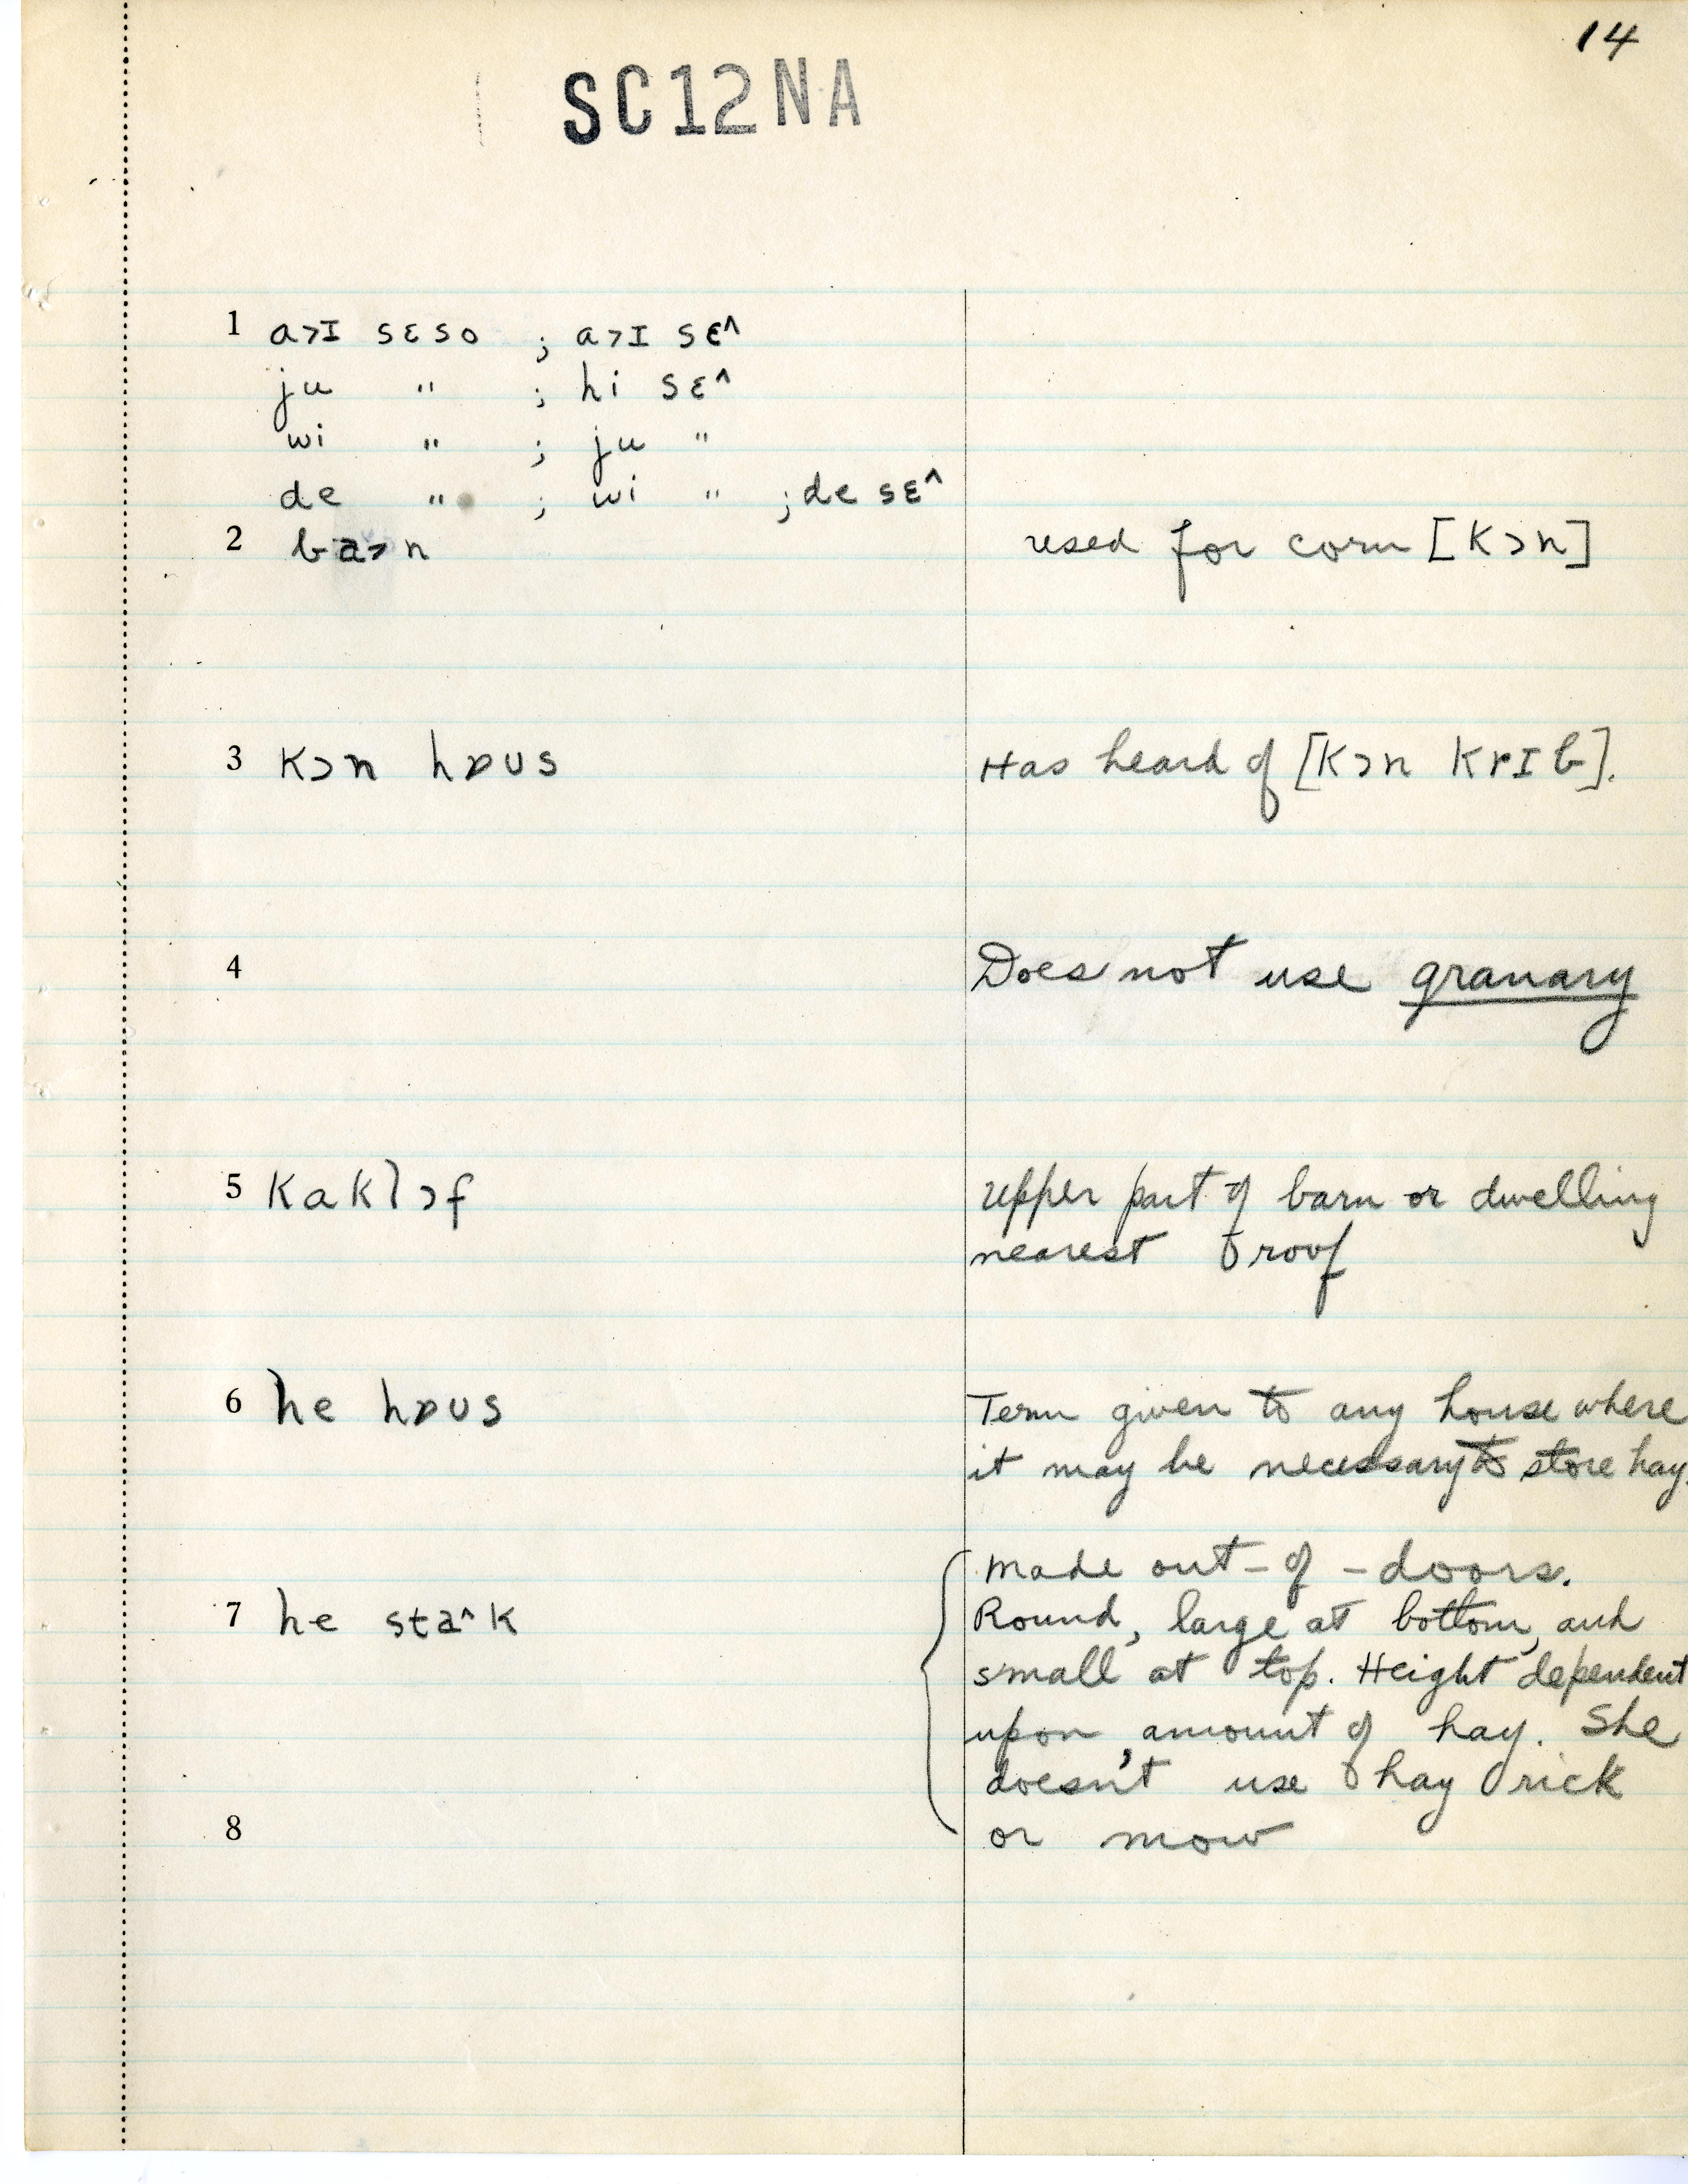 14
SC12NA
1 a>ɪ sɛso ; a>ɪ sɛ^
ju " ; hi sɛ^
wi " ; ju "
de " ; wi " ; de sɛ^
2 ba>n used for corn [kɔn]
3 kɔn hɒʊs Has heard of [kɔn krɪb].
4 Does not use granary
5 kaklɔf upper part of barn or dwelling
nearest roof
6 he hɒʊs Term given to any house where
it may be necessary to store hay.
made out-of-doors.
7 he sta^k Round, large at bottom, and
small at top. Height dependent
upon amount of hay. She
doesn't use hay rick
8 or mow